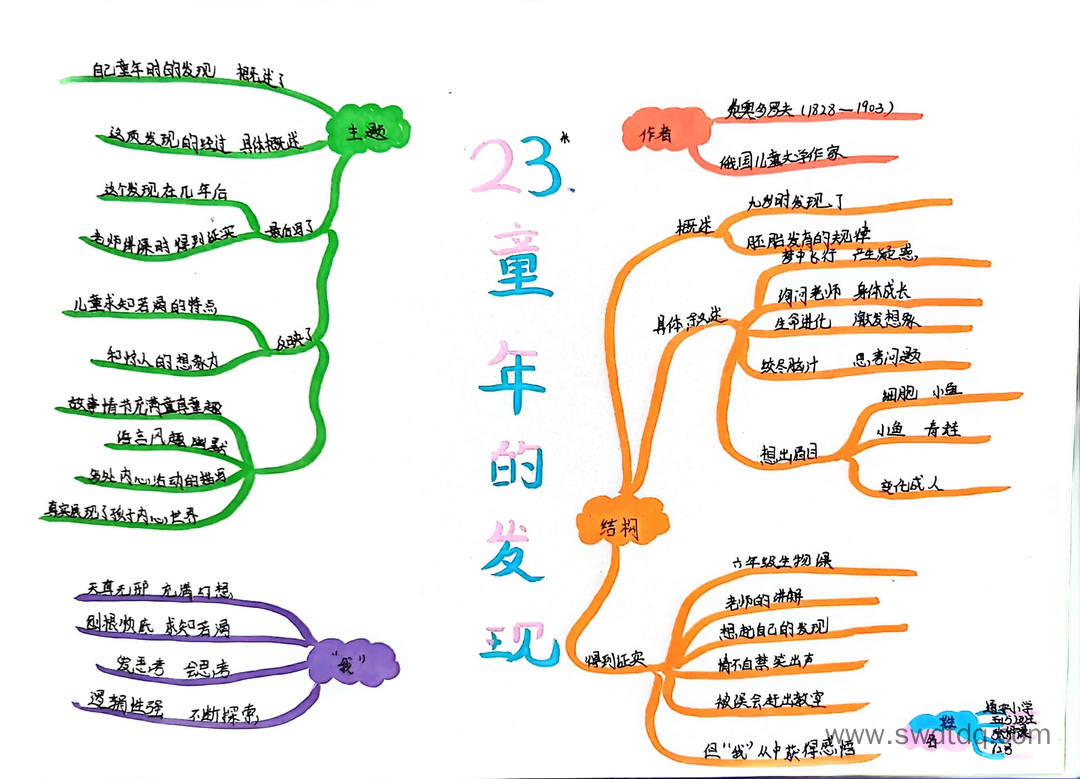 23*
童年的发现
主题
自己童年时的发现 概述了
这项发现的经过 具体概述
最后写了
这个发现在几年后
老师讲课时得到证实
反映了
儿童求知若渴的特点
和惊人的想象力
故事情节充满童真童趣
语言风趣幽默
多处内心活动的描写
真实展现了孩子内心世界
“我”
天真无邪 充满幻想
刨根问底 求知若渴
爱思考 会思考
逻辑性强 不断探索
作者
费奥多罗夫(1828—1903)
俄国儿童文学作家
结构
概述
九岁时发现了
胚胎发育的规律
具体叙述
梦中飞行 产生疑惑
询问老师 身体成长
生命进化 激发想象
绞尽脑汁 思考问题
想出眉目
细胞 小鱼
小鱼 青蛙
变化成人
得到证实
六年级生物课
老师的讲解
想起自己的发现
情不自禁笑出声
被误会赶出教室
但“我”从中获得感悟
姓名
小学
www.swdtdq.com